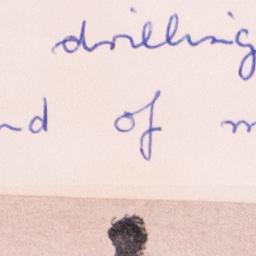 drilling
nd of m